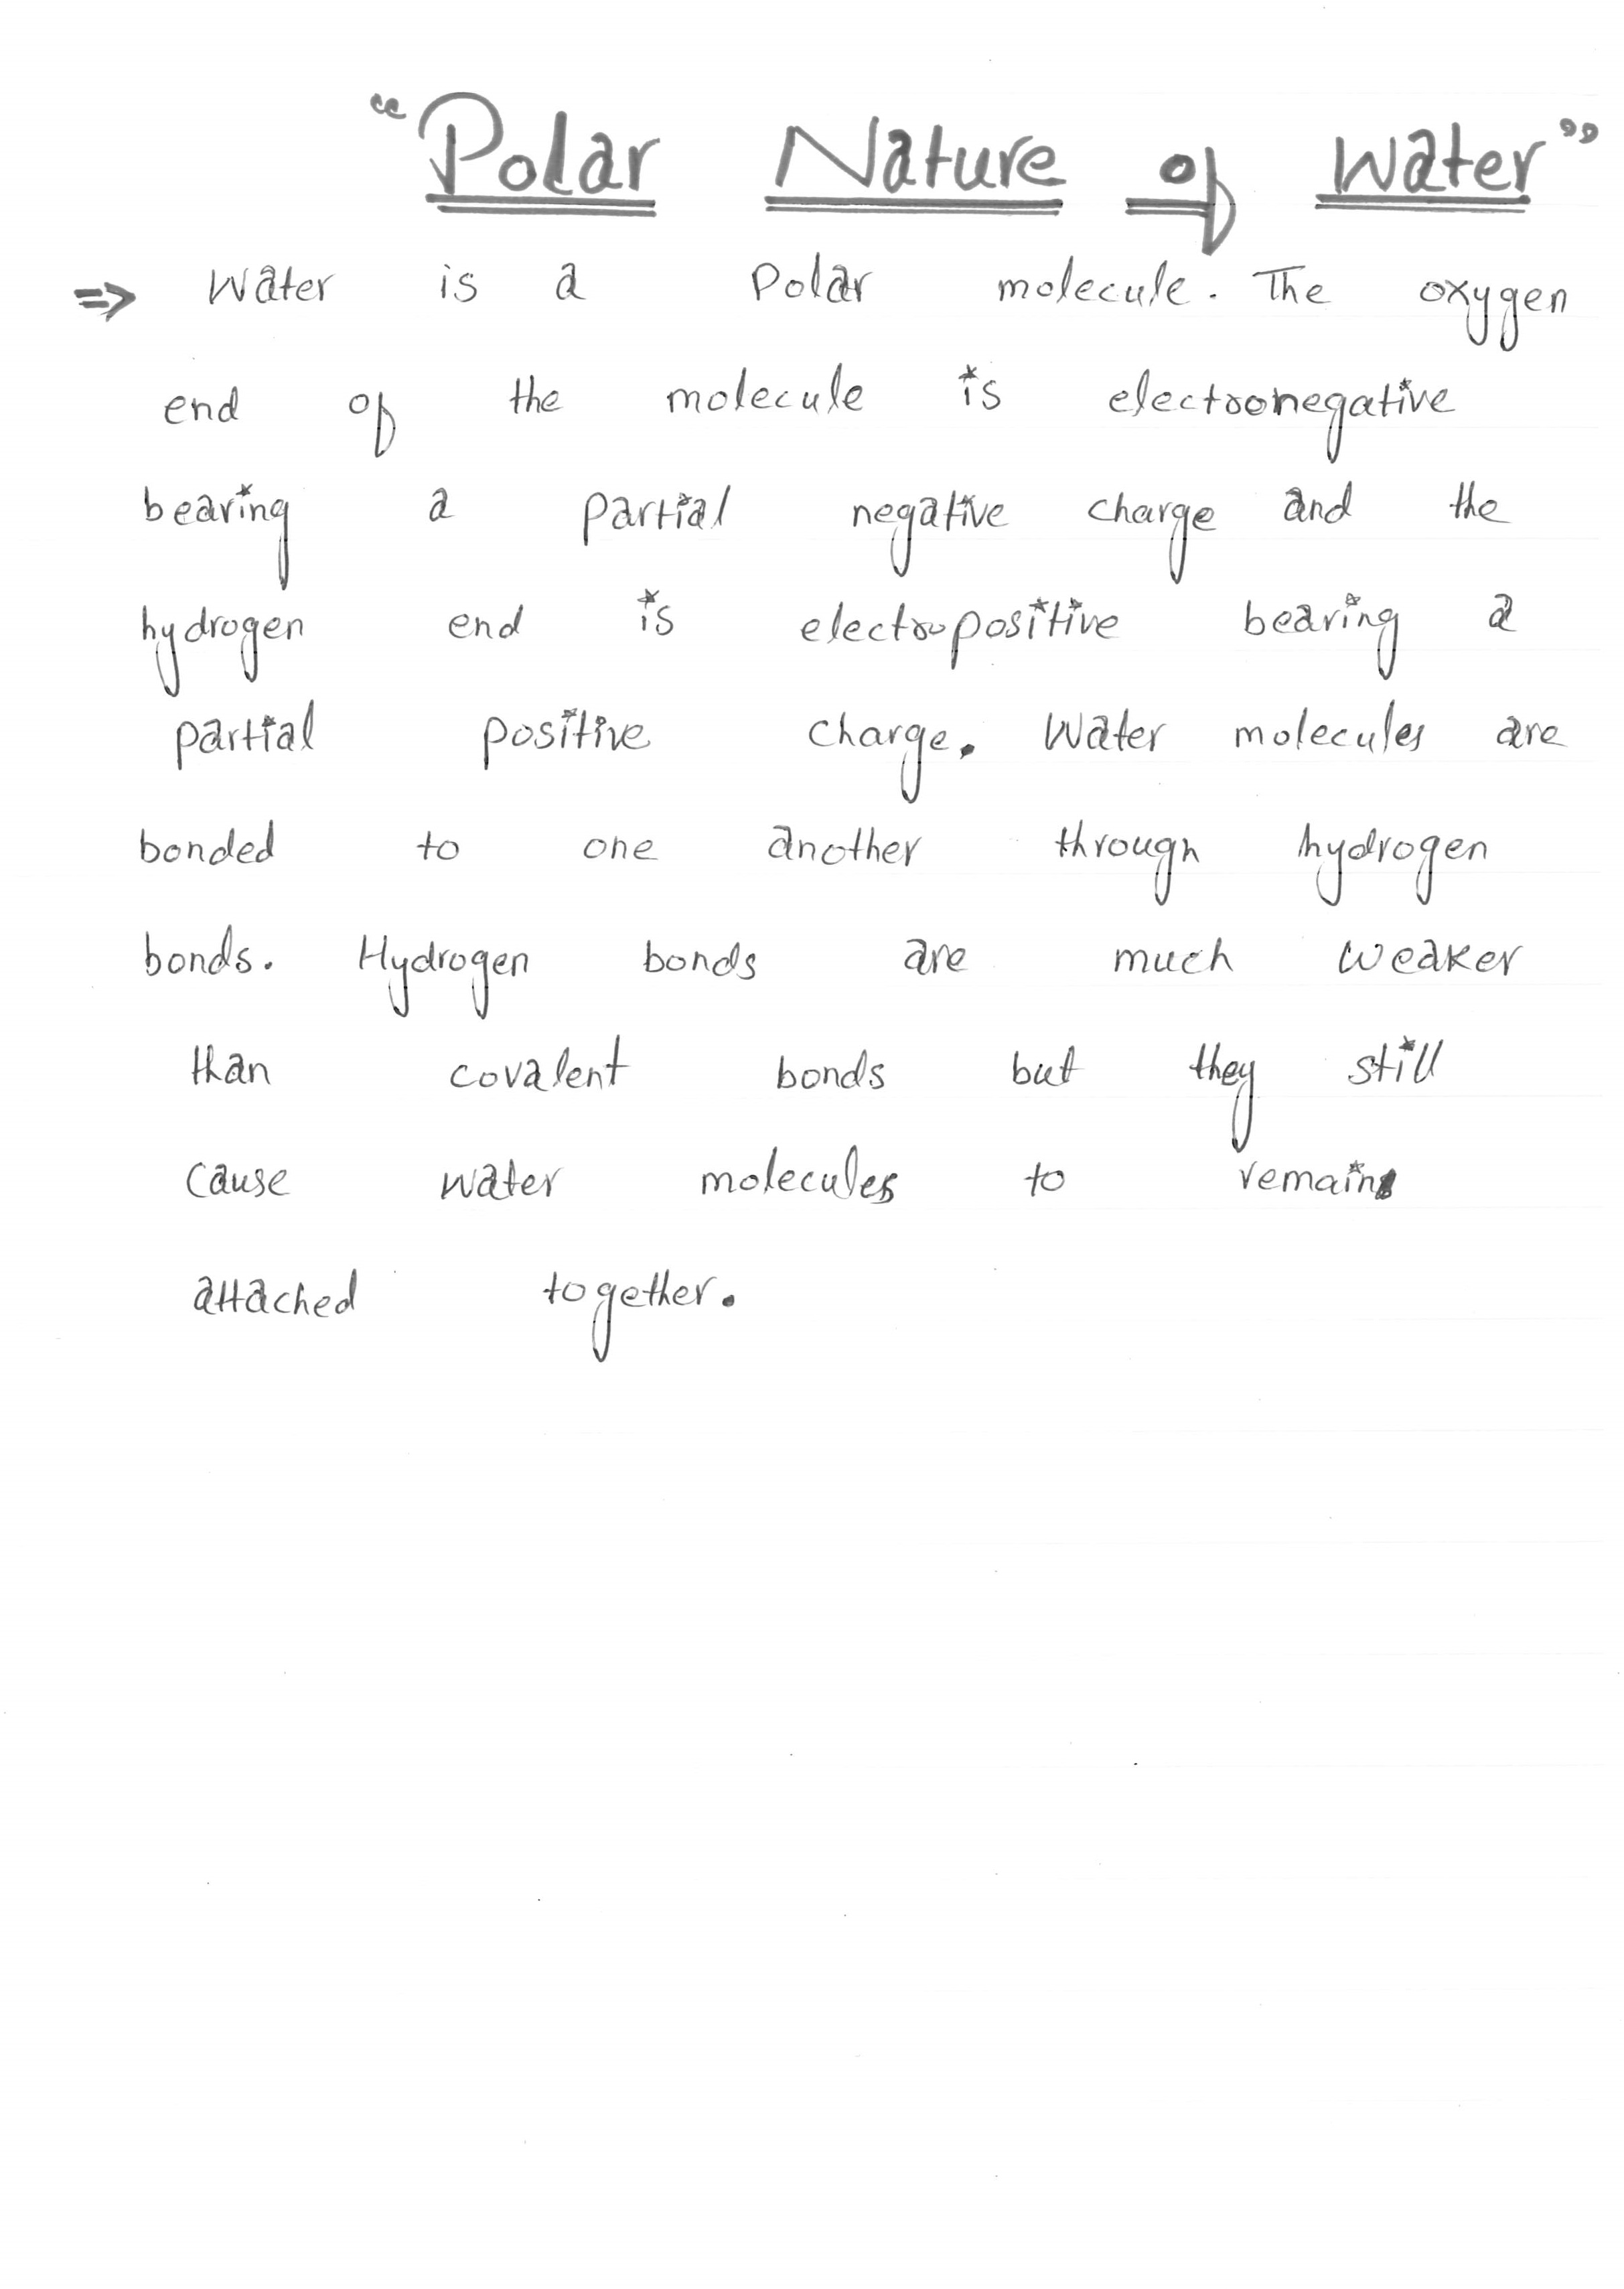 “Polar Nature of Water”
⇒ Water is a Polar molecule. The oxygen
end of the molecule is electronegative
bearing a partial negative charge and the
hydrogen end is electropositive bearing a
partial positive charge. Water molecules are
bonded to one another through hydrogen
bonds. Hydrogen bonds are much weaker
than covalent bonds but they still
cause water molecules to remain
attached together.